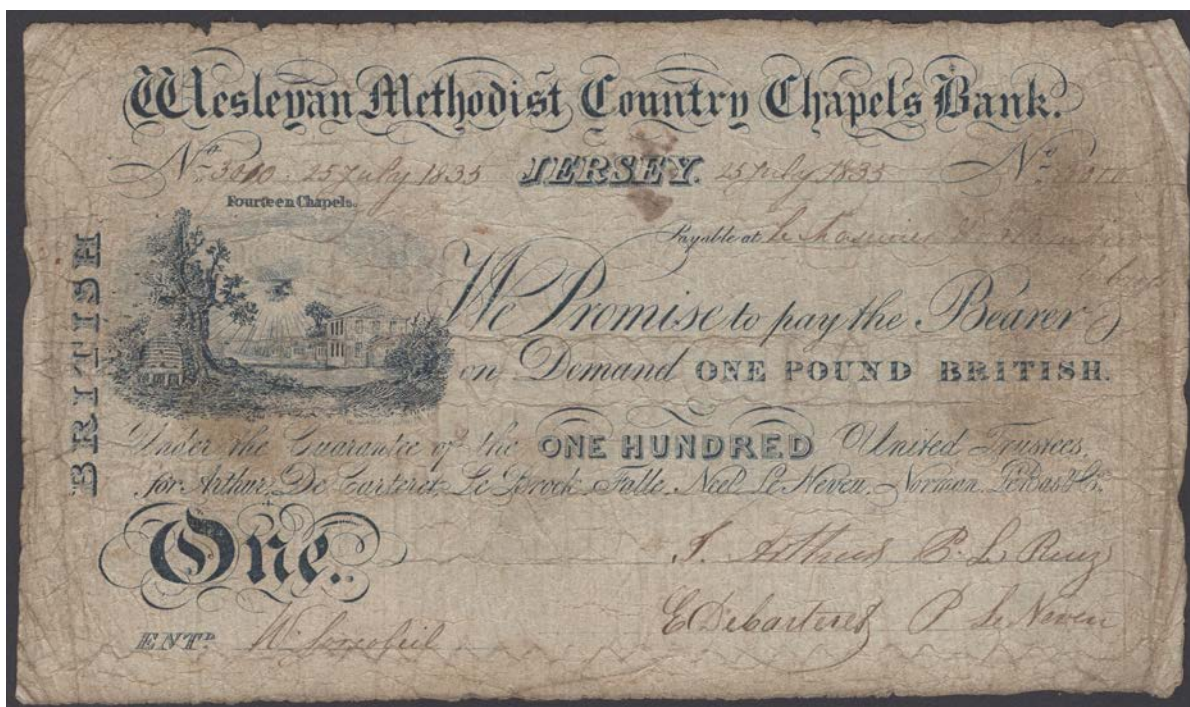 Wesleyan Methodist Country Chapels Bank.
No. 3000 25 July 1835 JERSEY. 25 July 1835 No.
Fourteen Chapels.
Payable at
BRITISH
We Promise to pay the Bearer
on Demand ONE POUND BRITISH.
Under the Guarantee of the ONE HUNDRED United Trustees,
for Arthur, De Carteret, Le Brock, Falle, Neel, Le Neven, Norman, LeBas & Co.
One.
J. Arthur P. L
E DeCarteret P Le Neven
ENTD. W.